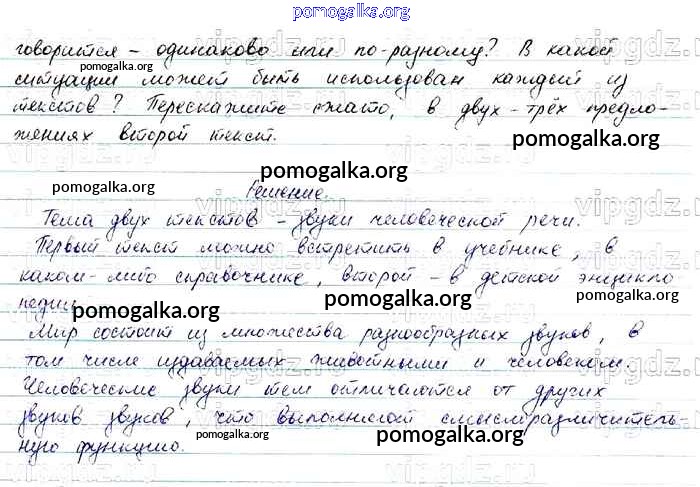 pomogalka.org
говорится - одинаково или по-разному? В какой
ситуации может быть использован каждый из
pomogalka.org
текстов? Перескажите сжато, в двух-трёх предло-
жениях второй текст.
pomogalka.org
pomogalka.org
pomogalka.org
Решение.
Тема двух текстов - звуки человеческой речи.
Первый текст можно встретить в учебнике, в
каком-либо справочнике, второй - в детской энцикло
педии
pomogalka.org pomogalka.org pomogalka.org
Мир состоит из множества разнообразных звуков, в
том числе издаваемых животными и человеком.
Человеческие звуки тем отличаются от других
звуков звуков, что выполняют смыслоразличитель-
ную функцию.
pomogalka.org pomogalka.org pomogalka.org